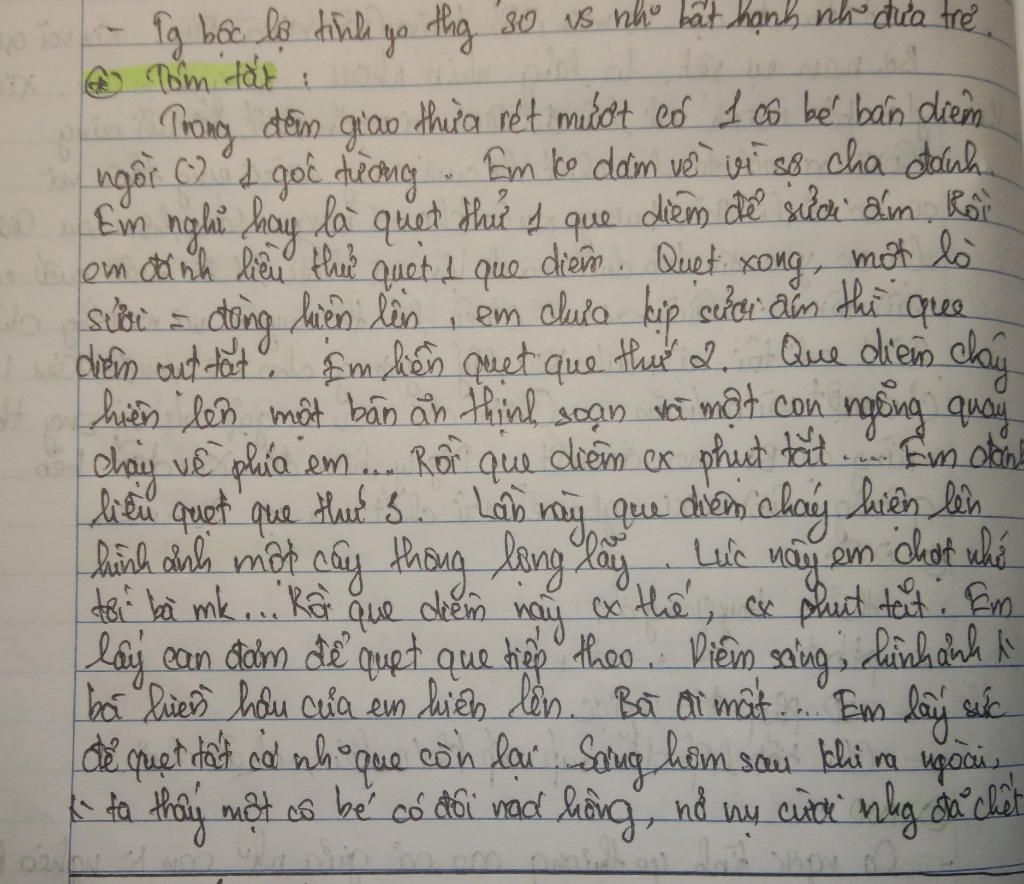 - Tg bộc lộ tình yo thg so vs nhơ bất hạnh nhơ đứa trẻ.
⊛ Tóm tắt :
Trong đêm giao thừa rét mướt có 1 cô bé bán diêm
ngồi () 1 góc tường. Em ko dám về vì sợ cha đánh.
Em nghĩ hay là quẹt thử 1 que diêm để sưởi ấm. Rồi
em đánh liều thử quẹt 1 que diêm. Quẹt xong, một lò
sưởi = đồng hiện lên, em chưa kịp sưởi ấm thì que
diêm vụt tắt. Em liền quẹt que thứ 2. Que diêm cháy
hiện lên một bàn ăn thịnh soạn và một con ngỗng quay
chạy về phía em... Rồi que diêm cx phụt tắt.... Em đánh
liều quẹt que thứ 3. Lần này que diêm cháy hiện lên
hình ảnh một cây thông lộng lẫy. Lúc này em chợt nhớ
tới bà mk... Rồi que diêm này cx thế, cx phụt tắt. Em
lấy can đảm để quẹt que tiếp theo. Diêm sáng, hình ảnh
bà hiền hậu của em hiện lên. Bà đi mất... Em lấy sức
để quẹt tất cả nhơ que còn lại. Sáng hôm sau khi ra ngoài,
ta thấy một cô bé có đôi má hồng, nở nụ cười nhg đã chết